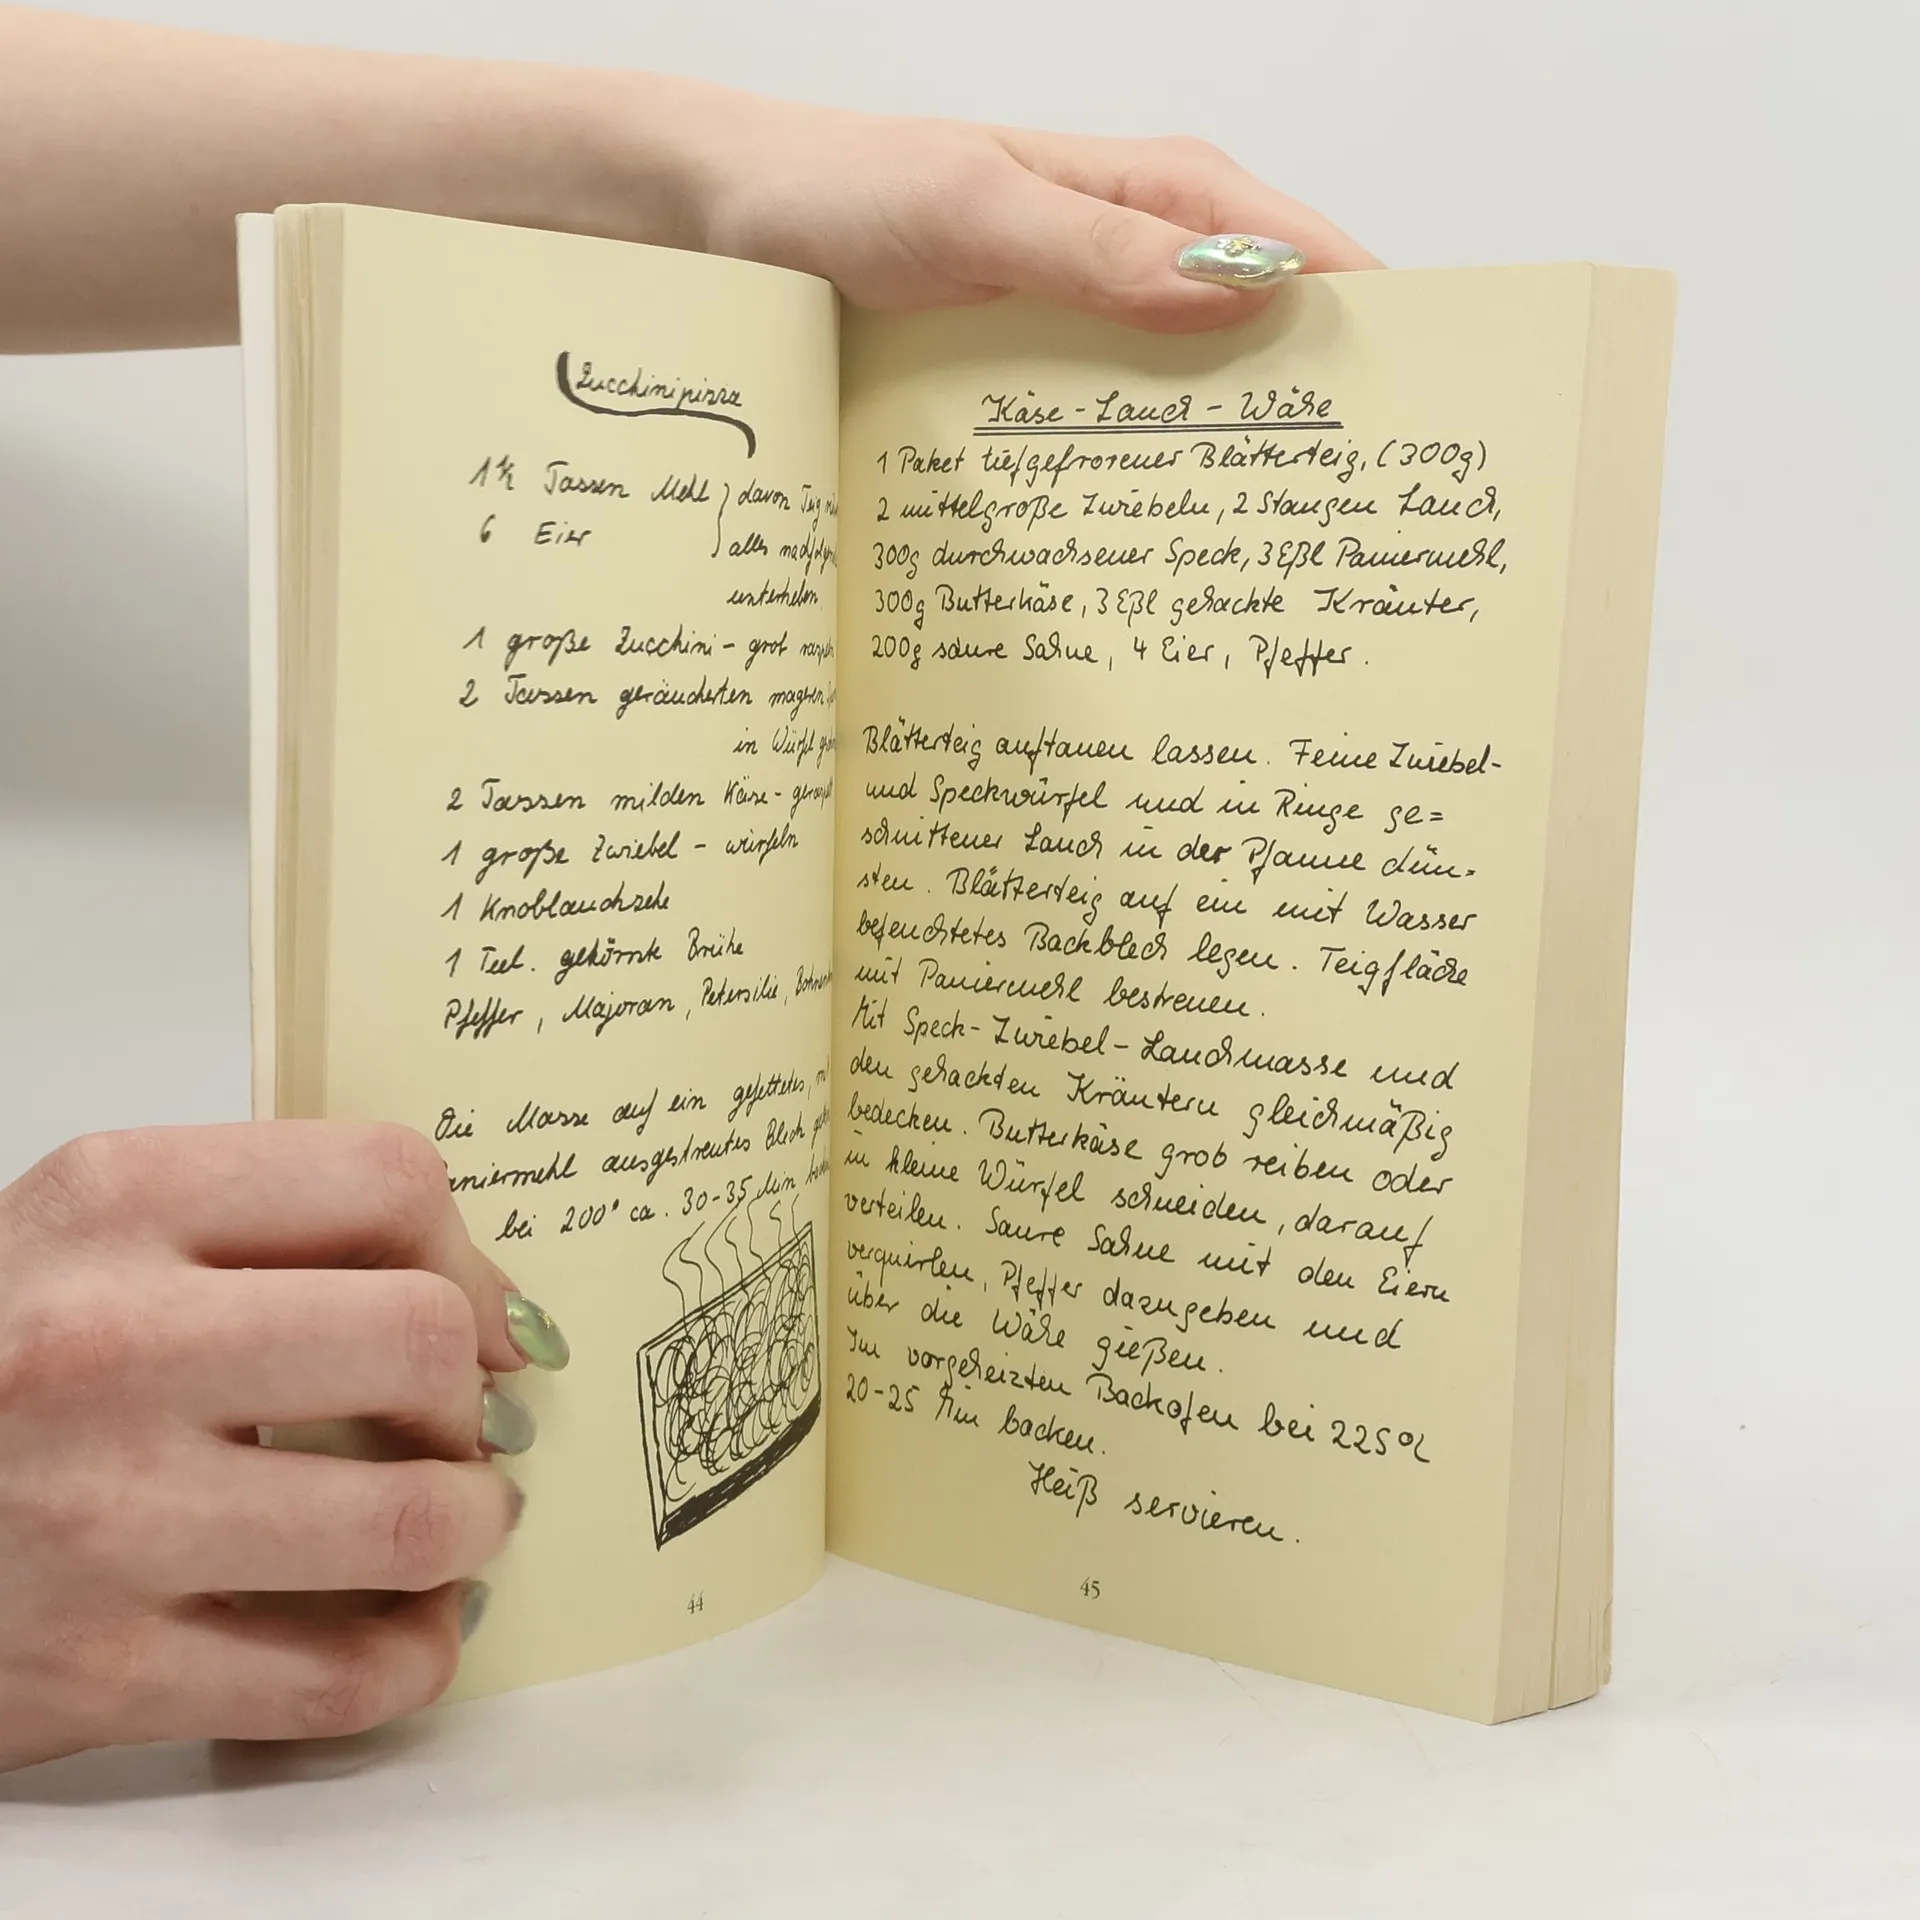 Zucchinipizza
1½ Tassen Mehl } davon Teig
6 Eier
alles
unterheben.
1 große Zucchini - grob
2 Tassen geräucherten mageren
in Würfel
2 Tassen milden Käse -
1 große Zwiebel - würfeln
1 Knoblauchzehe
1 Teel. gekörnte Brühe
Pfeffer, Majoran, Petersilie,
Die Masse auf ein gefettetes,
ausgestreutes Blech
bei 200° ca. 30-35 Min
44
Käse-Lauch-Wähe
1 Paket tiefgefrorener Blätterteig, (300g)
2 mittelgroße Zwiebeln, 2 Stangen Lauch,
300g durchwachsener Speck, 3 Eßl Paniermehl,
300g Butterkäse, 3 Eßl gehackte Kräuter,
200g saure Sahne, 4 Eier, Pfeffer.
Blätterteig auftauen lassen. Feine Zwiebel-
und Speckwürfel und in Ringe ge=
schnittener Lauch in der Pfanne dün-
sten. Blätterteig auf ein mit Wasser
befeuchtetes Backblech legen. Teigfläche
mit Paniermehl bestreuen.
Mit Speck-Zwiebel-Lauchmasse und
den gehackten Kräutern gleichmäßig
bedecken. Butterkäse grob reiben oder
in kleine Würfel schneiden, darauf
verteilen. Saure Sahne mit den Eiern
verquirlen, Pfeffer dazugeben und
über die Wähe gießen.
Im vorgeheizten Backofen bei 225°C
20-25 Min backen.
Heiß servieren.
45